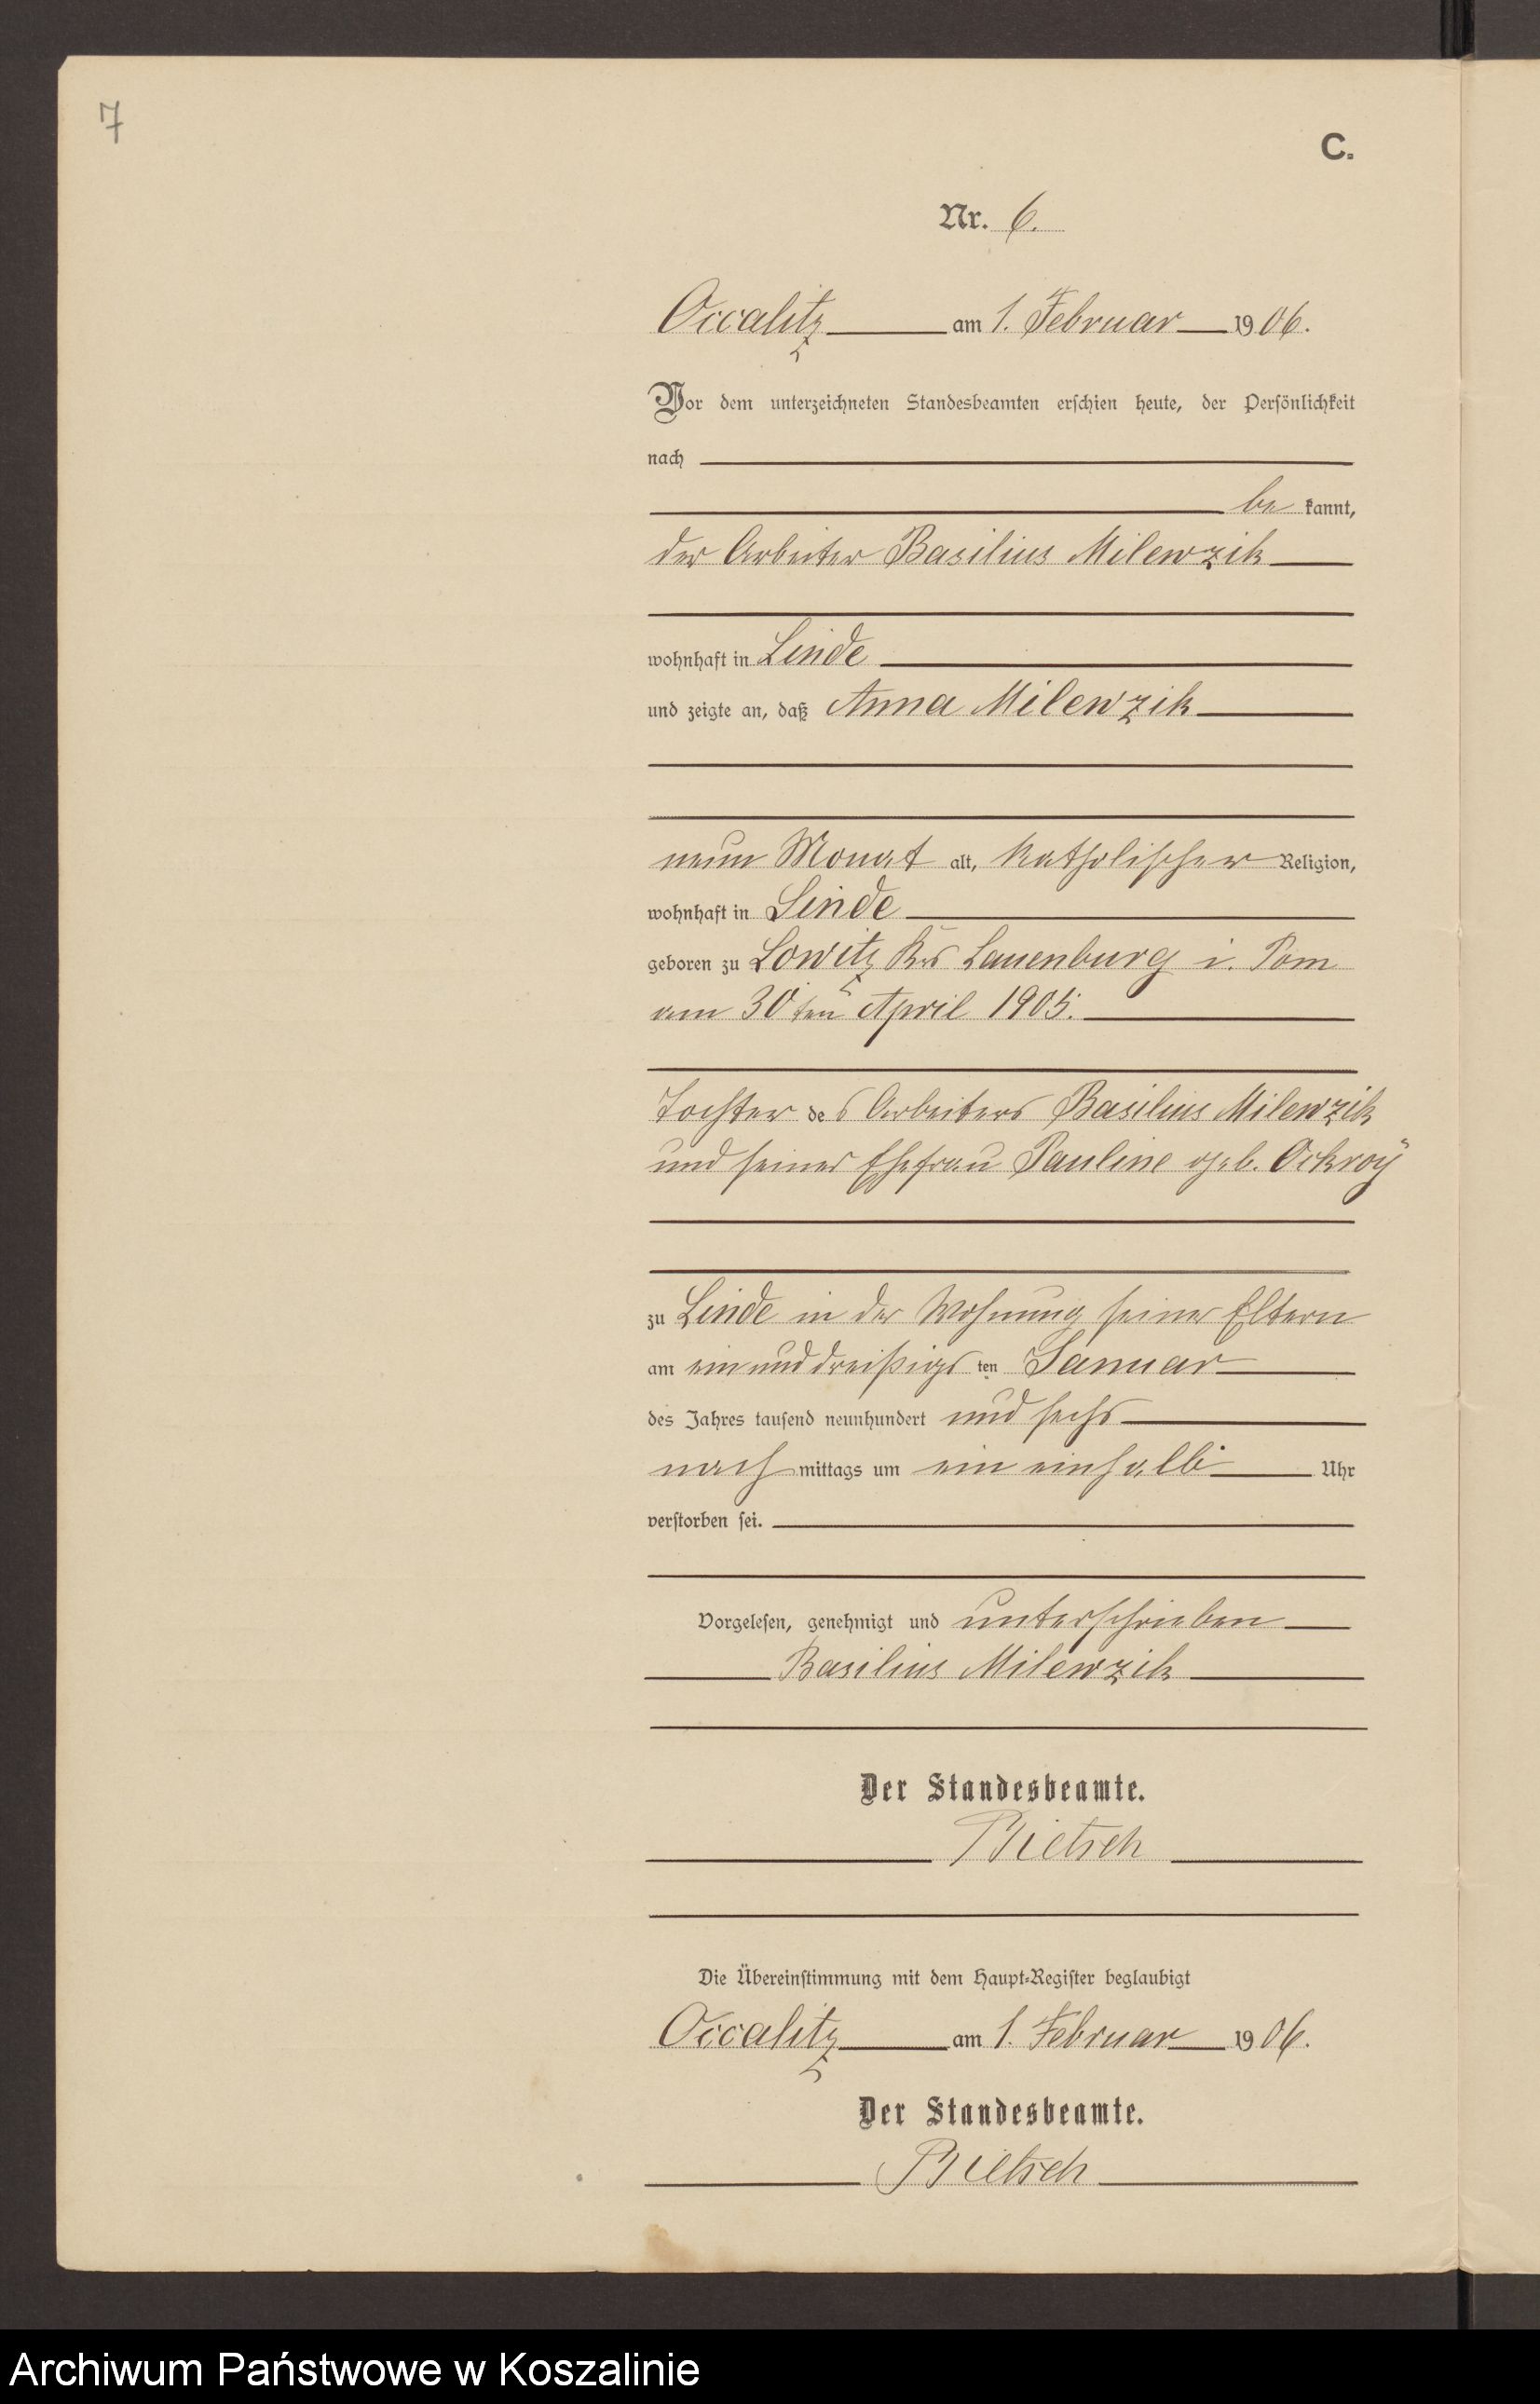 7
C.
Nr. 6.
Occalitz am 1. Februar 1906.
Vor dem unterzeichneten Standesbeamten erschien heute, der Persönlichkeit
nach
be kannt,
der Arbeiter Basilius Milewzik
wohnhaft in Linde
und zeigte an, daß Anna Milewzik
neun Monat alt, katholischer Religion,
wohnhaft in Linde
geboren zu Lowitz Krs Lauenburg i. Pom
am 30ten April 1905.
Tochter des Arbeiters Basilius Milewzik
und seiner Ehefrau Pauline geb. Ockroÿ
zu Linde in der Wohnung seiner Eltern
am ein und dreißigsten Januar
des Jahres tausend neunhundert und sechs
nachmittags um ein einhalb Uhr
verstorben sei.
Vorgelesen, genehmigt und unterschrieben
Basilius Milewzik
Der Standesbeamte.
Bietsch
Die Übereinstimmung mit dem Haupt-Register beglaubigt
Occalitz am 1. Februar 1906.
Der Standesbeamte.
Bietsch
Archiwum Państwowe w Koszalinie